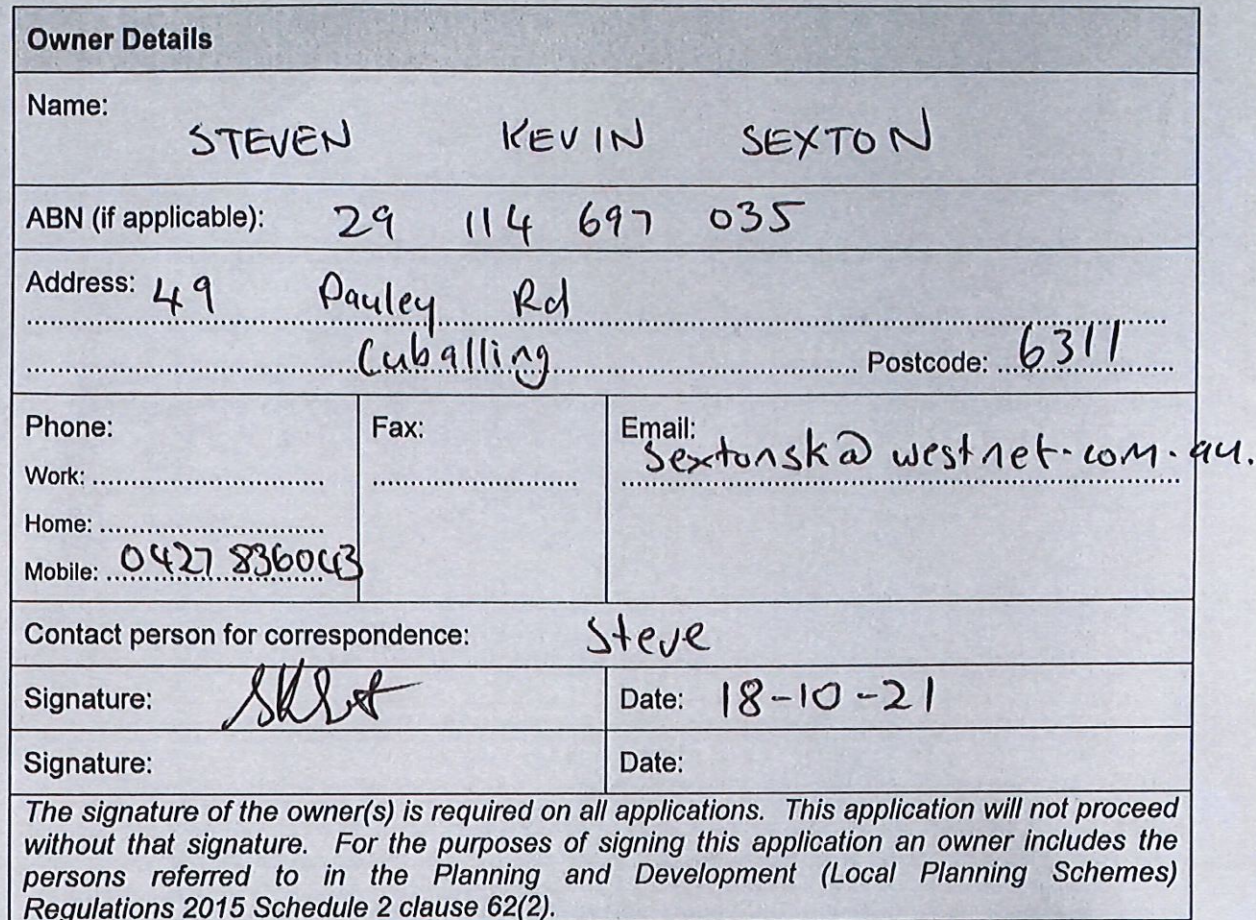 Owner Details
Name:
STEVEN KEVIN SEXTON
ABN (if applicable): 29 114 697 035
Address: 49 Pauley Rd
Cuballing Postcode: 6311
Phone: Fax: Email:
sextonsk@westnet.com.au.
Work:
Home:
Mobile: 0427 836043
Contact person for correspondence: Steve
Signature: Date: 18-10-21
Signature: Date:
The signature of the owner(s) is required on all applications. This application will not proceed
without that signature. For the purposes of signing this application an owner includes the
persons referred to in the Planning and Development (Local Planning Schemes)
Regulations 2015 Schedule 2 clause 62(2).